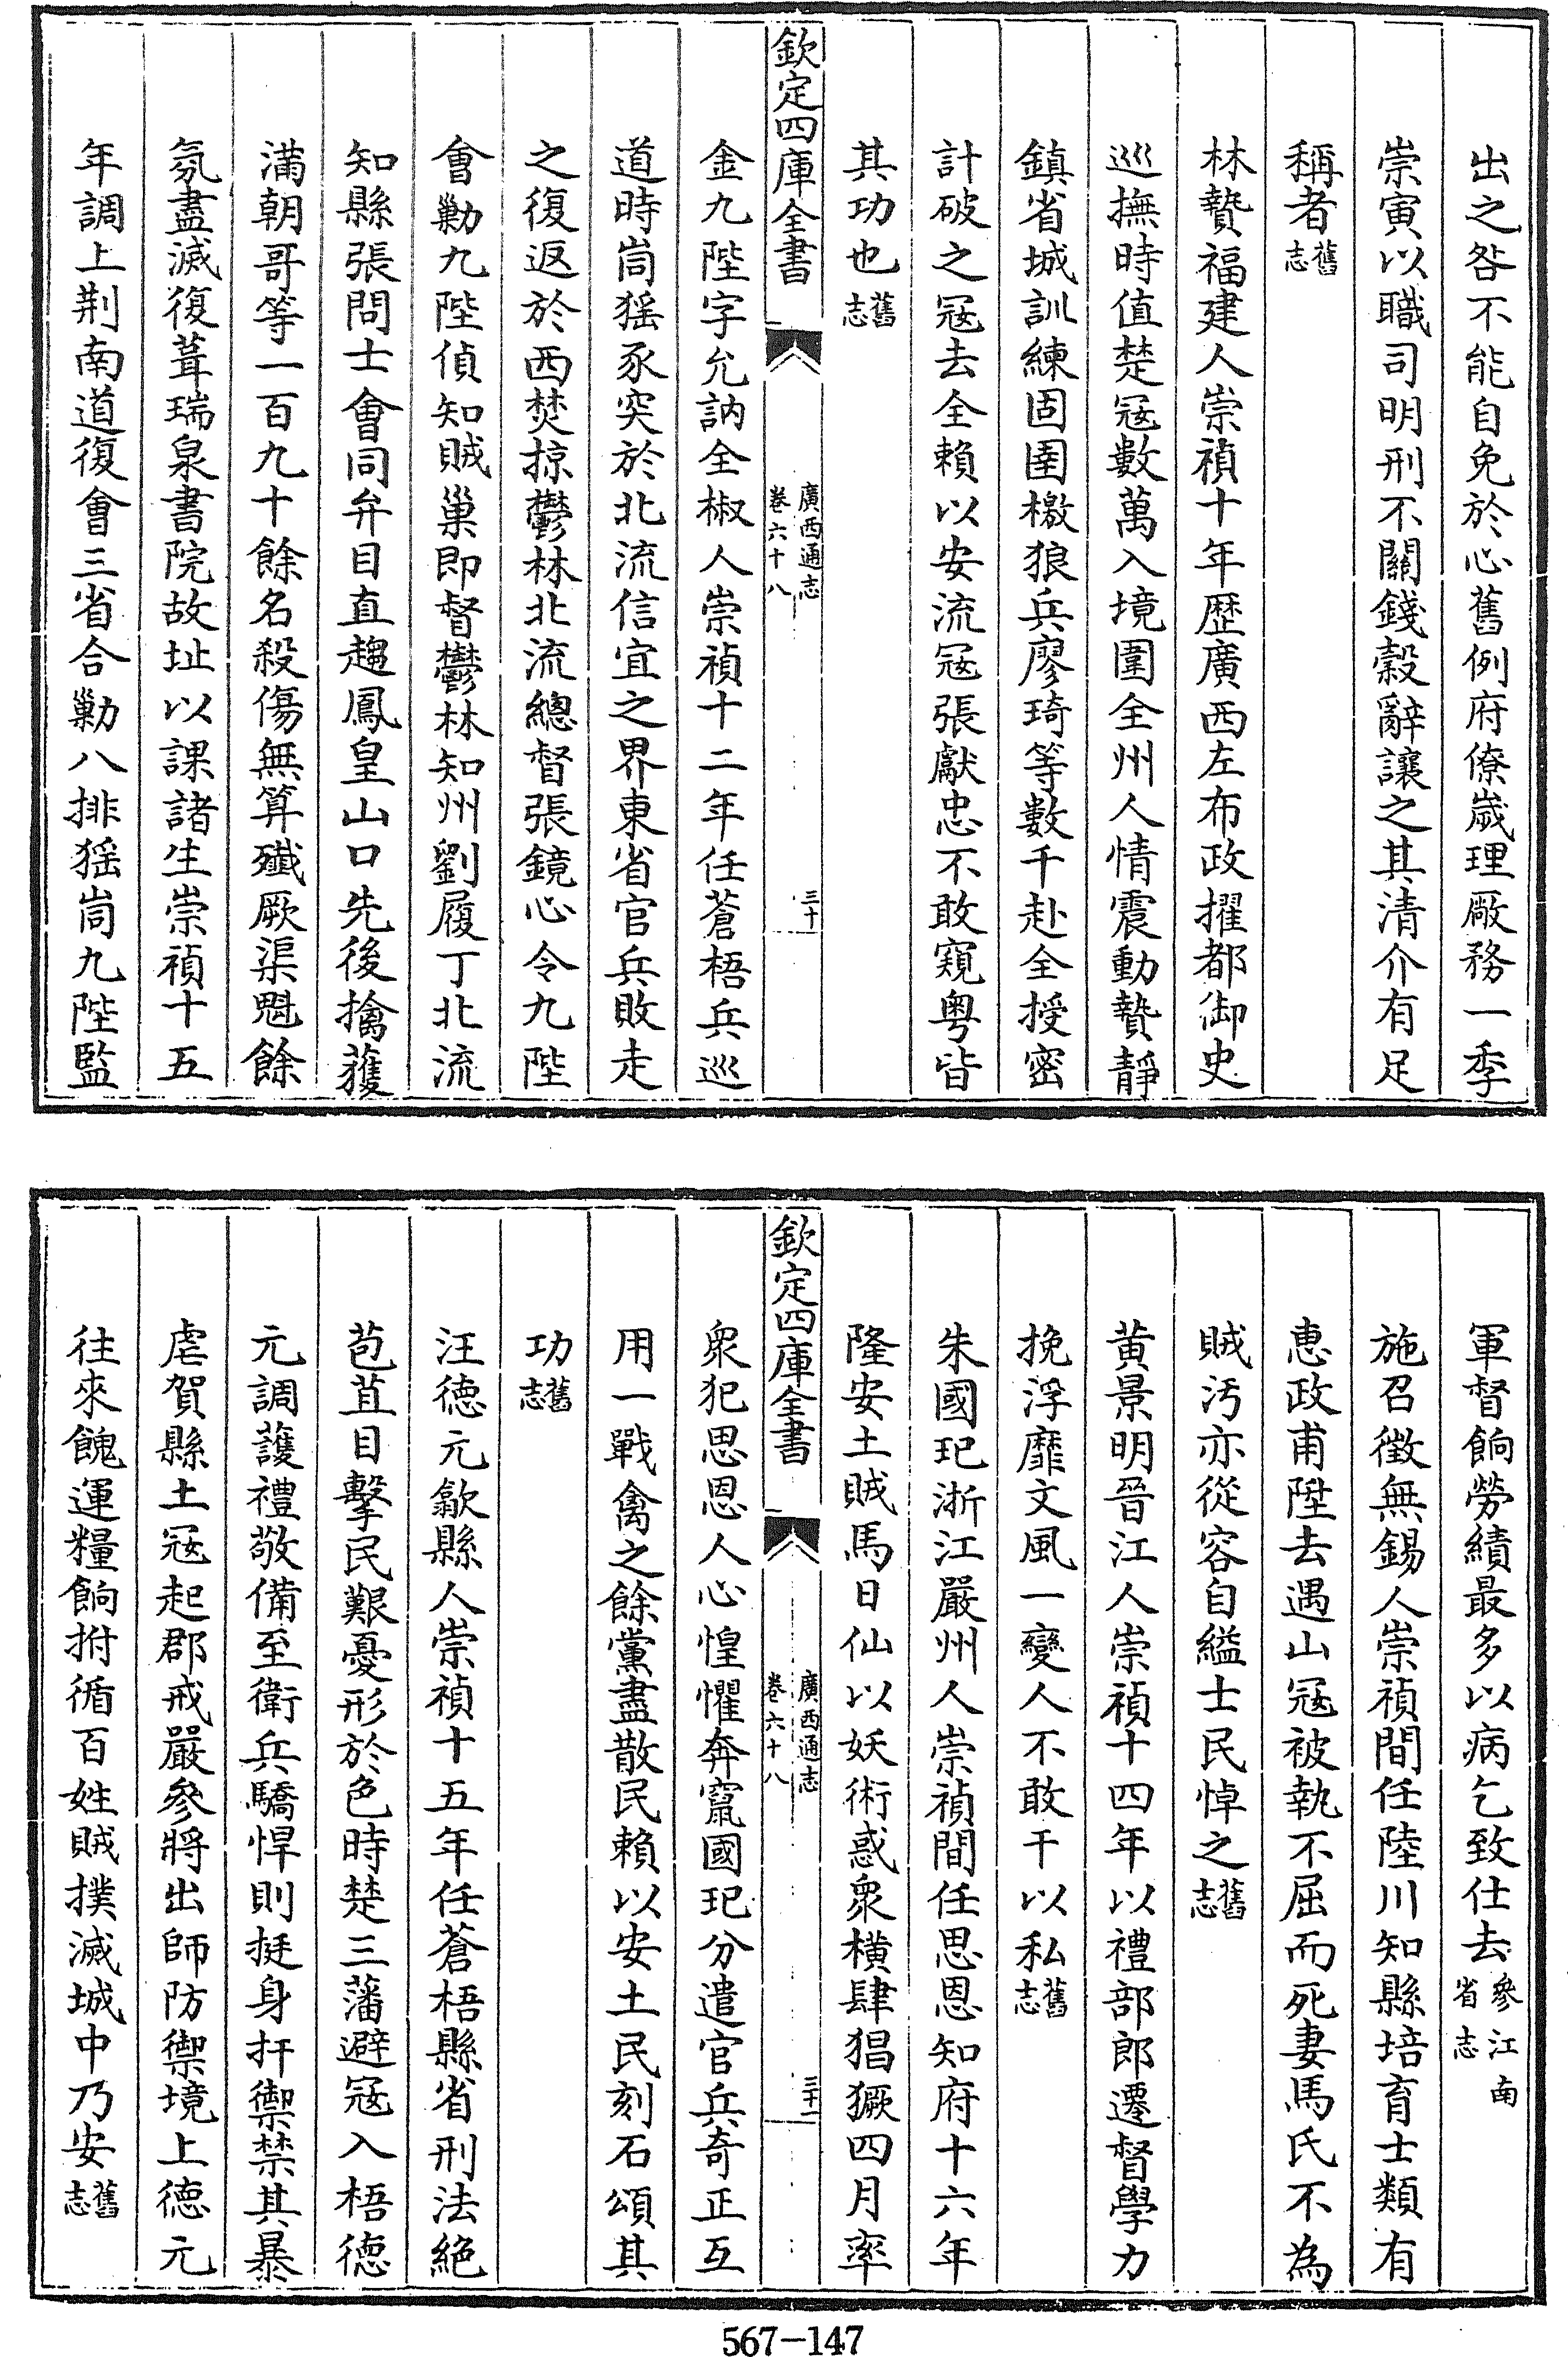 出之咎不能自免於心舊例府僚嵗理厰務一季
崇寅以職司明刑不關錢糓辭讓之其清介有足
稱者舊志
林贄福建人崇禎十年歴廣西左布政擢都御史
巡撫時值楚冦數萬入境圍全州人情震動贄靜
鎮省城訓練固圉檄狼兵廖琦等數千赴全授密
計破之冦去全賴以安流冦張獻忠不敢窺粤皆
其功也舊志
欽定四庫全書
廣西通志
卷六十八
三十
金九陛字允訥全椒人崇禎十二年任蒼梧兵巡
道時峝猺豕突於北流信宜之界東省官兵敗走
之復返於西焚掠鬱林北流總督張鏡心令九陛
會勦九陛偵知賊巢即督鬱林知州劉履丁北流
知縣張問士會同弁目直趨鳳皇山口先後擒獲
滿朝哥等一百九十餘名殺傷無算殲厥渠魁餘
氛盡滅復葺瑞泉書院故址以課諸生崇禎十五
年調上荆南道復會三省合勦八排猺峝九陛監
軍督餉勞績最多以病乞致仕去參江南省志
施召徵無錫人崇禎間任陸川知縣培育士類有
惠政甫陞去遇山冦被執不屈而死妻馬氏不為
賊汚亦從容自縊士民悼之舊志
黄景明晉江人崇禎十四年以禮部郎遷督學力
挽浮靡文風一變人不敢干以私舊志
朱國𤣱浙江嚴州人崇禎間任思恩知府十六年
隆安土賊馬日仙以妖術惑衆橫肆猖獗四月率
欽定四庫全書
廣西通志
卷六十八
三十一
衆犯思恩人心惶懼奔竄國𤣱分遣官兵奇正互
用一戰禽之餘黨盡散民賴以安土民刻石頌其
功舊志
汪德元歙縣人崇禎十五年任蒼梧縣省刑法絶
苞苴目擊民艱憂形於色時楚三藩避冦入梧德
元調護禮敬備至衛兵驕悍則挺身扞禦禁其暴
虐賀縣土冦起郡戒嚴參將出師防禦境上德元
往來餽運糧餉拊循百姓賊撲滅城中乃安舊志
567-147